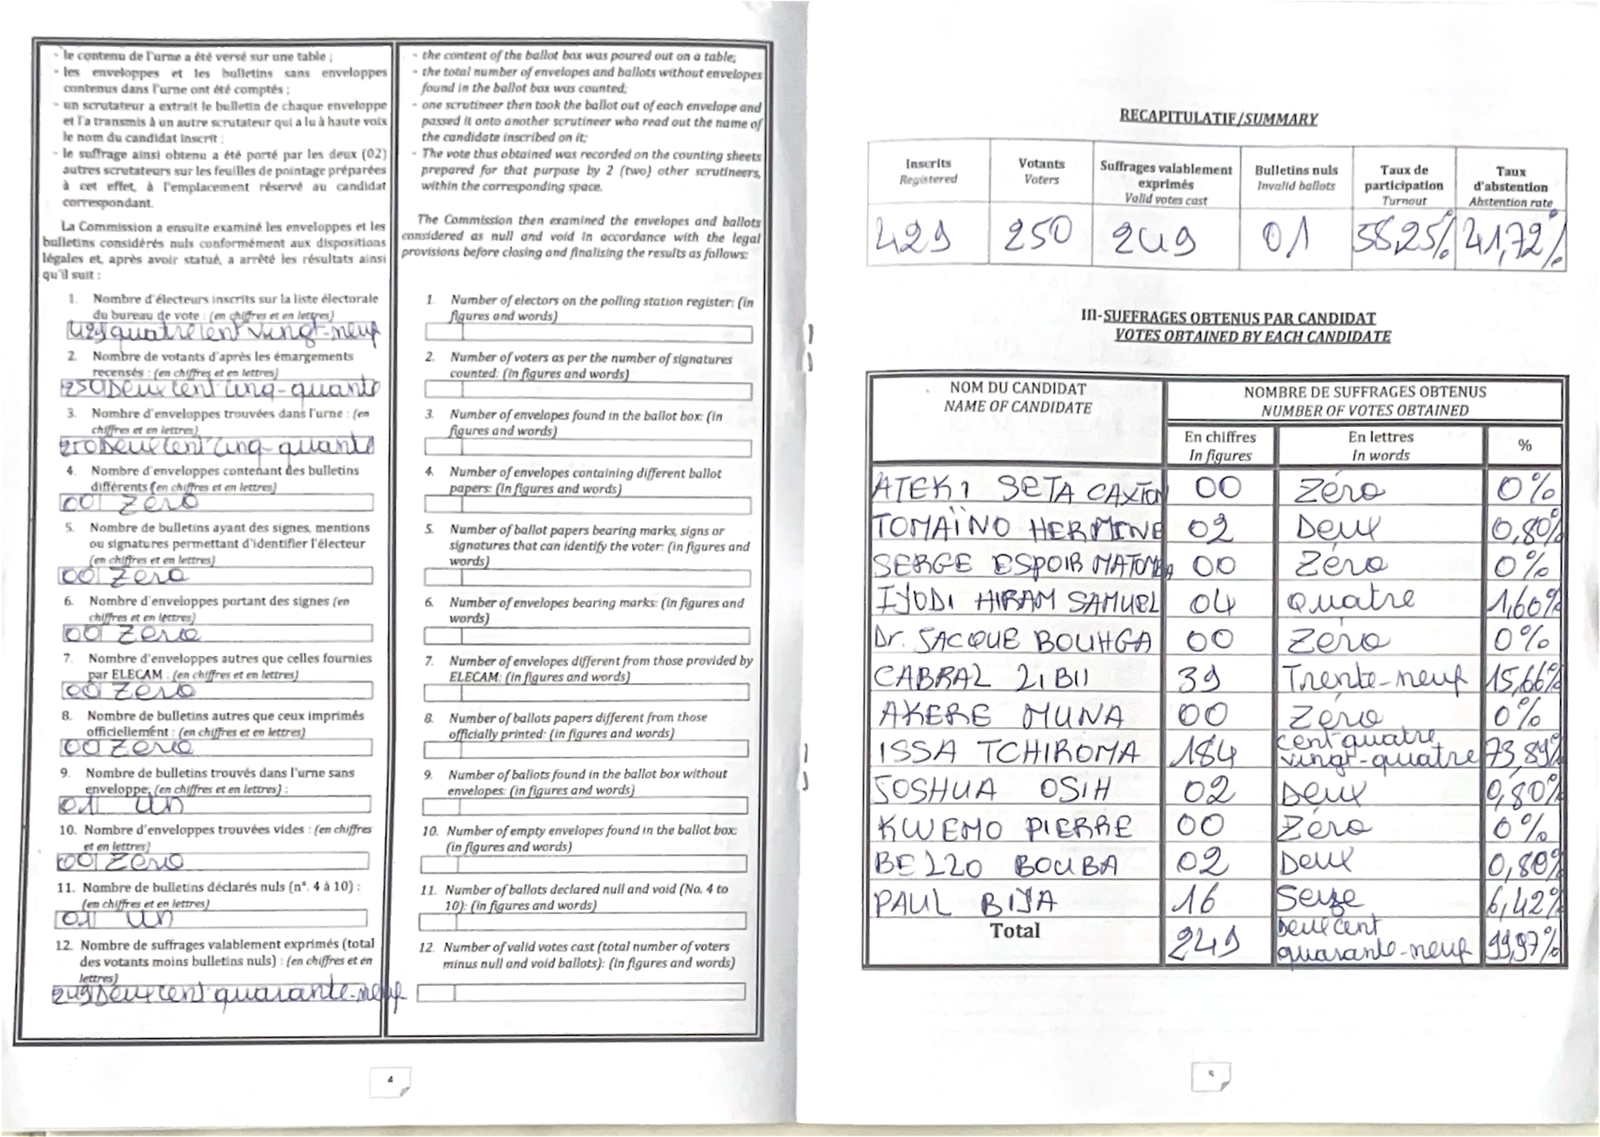 - le contenu de l'urne a été versé sur une table ;
- les enveloppes et les bulletins sans enveloppes
contenus dans l'urne ont été comptés ;
- un scrutateur a extrait le bulletin de chaque enveloppe
et l'a transmis à un autre scrutateur qui a lu à haute voix
le nom du candidat inscrit ;
- le suffrage ainsi obtenu a été porté par les deux (02)
autres scrutateurs sur les feuilles de pointage préparées
à cet effet, à l'emplacement réservé au candidat
correspondant.
La Commission a ensuite examiné les enveloppes et les
bulletins considérés nuls conformément aux dispositions
légales et, après avoir statué, a arrêté les résultats ainsi
qu'il suit :
1. Nombre d'électeurs inscrits sur la liste électorale
du bureau de vote : (en chiffres et en lettres)
429 quatre cent vingt-neuf
2. Nombre de votants d'après les émargements
recensés : (en chiffres et en lettres)
250 Deux cent cinq-quante
3. Nombre d'enveloppes trouvées dans l'urne : (en
chiffres et en lettres)
250 Deux cent cinq-quante
4. Nombre d'enveloppes contenant des bulletins
différents (en chiffres et en lettres)
00 Zéro
5. Nombre de bulletins ayant des signes, mentions
ou signatures permettant d'identifier l'électeur
(en chiffres et en lettres)
00 Zéro
6. Nombre d'enveloppes portant des signes (en
chiffres et en lettres)
00 Zéro
7. Nombre d'enveloppes autres que celles fournies
par ELECAM : (en chiffres et en lettres)
00 Zéro
8. Nombre de bulletins autres que ceux imprimés
officiellement : (en chiffres et en lettres)
00 Zéro
9. Nombre de bulletins trouvés dans l'urne sans
enveloppe; (en chiffres et en lettres) :
01 un
10. Nombre d'enveloppes trouvées vides : (en chiffres
et en lettres)
00 Zéro
11. Nombre de bulletins déclarés nuls (n°. 4 à 10) :
(en chiffres et en lettres)
01 un
12. Nombre de suffrages valablement exprimés (total
des votants moins bulletins nuls) : (en chiffres et en
lettres)
249 Deux cent quarante-neuf
- the content of the ballot box was poured out on a table;
- the total number of envelopes and ballots without envelopes
found in the ballot box was counted;
- one scrutineer then took the ballot out of each envelope and
passed it onto another scrutineer who read out the name of
the candidate inscribed on it;
- The vote thus obtained was recorded on the counting sheets
prepared for that purpose by 2 (two) other scrutineers,
within the corresponding space.
The Commission then examined the envelopes and ballots
considered as null and void in accordance with the legal
provisions before closing and finalising the results as follows:
1. Number of electors on the polling station register: (in
figures and words)
2. Number of voters as per the number of signatures
counted: (in figures and words)
3. Number of envelopes found in the ballot box: (in
figures and words)
4. Number of envelopes containing different ballot
papers: (in figures and words)
5. Number of ballot papers bearing marks, signs or
signatures that can identify the voter: (in figures and
words)
6. Number of envelopes bearing marks: (in figures and
words)
7. Number of envelopes different from those provided by
ELECAM: (in figures and words)
8. Number of ballots papers different from those
officially printed: (in figures and words)
9. Number of ballots found in the ballot box without
envelopes: (in figures and words)
10. Number of empty envelopes found in the ballot box:
(in figures and words)
11. Number of ballots declared null and void (No. 4 to
10): (in figures and words)
12. Number of valid votes cast (total number of voters
minus null and void ballots): (in figures and words)
4
RECAPITULATIF/SUMMARY
Inscrits Registered Votants Voters Suffrages valablement exprimés Valid votes cast Bulletins nuls Invalid ballots Taux de participation Turnout Taux d'abstention Abstention rate
429 250 249 01 58,25% 41,72%
III-SUFFRAGES OBTENUS PAR CANDIDAT
VOTES OBTAINED BY EACH CANDIDATE
NOM DU CANDIDAT NOMBRE DE SUFFRAGES OBTENUS
NAME OF CANDIDATE NUMBER OF VOTES OBTAINED
En chiffres En lettres %
In figures In words
ATEKI SETA CAXTON 00 Zéro 0%
TOMAÏNO HERMINE 02 Deux 0,80%
SERGE ESPOIR MATOMBA 00 Zéro 0%
IYODI HIRAM SAMUEL 04 Quatre 1,60%
Dr. JACQUE BOUHGA 00 Zéro 0%
CABRAL LIBII 39 Trente-neuf 15,66%
AKERE MUNA 00 Zéro 0%
ISSA TCHIROMA 184 cent quatre vingt-quatre 73,89%
JOSHUA OSIH 02 Deux 0,80%
KWEMO PIERRE 00 Zéro 0%
BELLO BOUBA 02 Deux 0,80%
PAUL BIYA 16 Seize 6,42%
Total 249 Deux cent quarante-neuf 99,97%
5